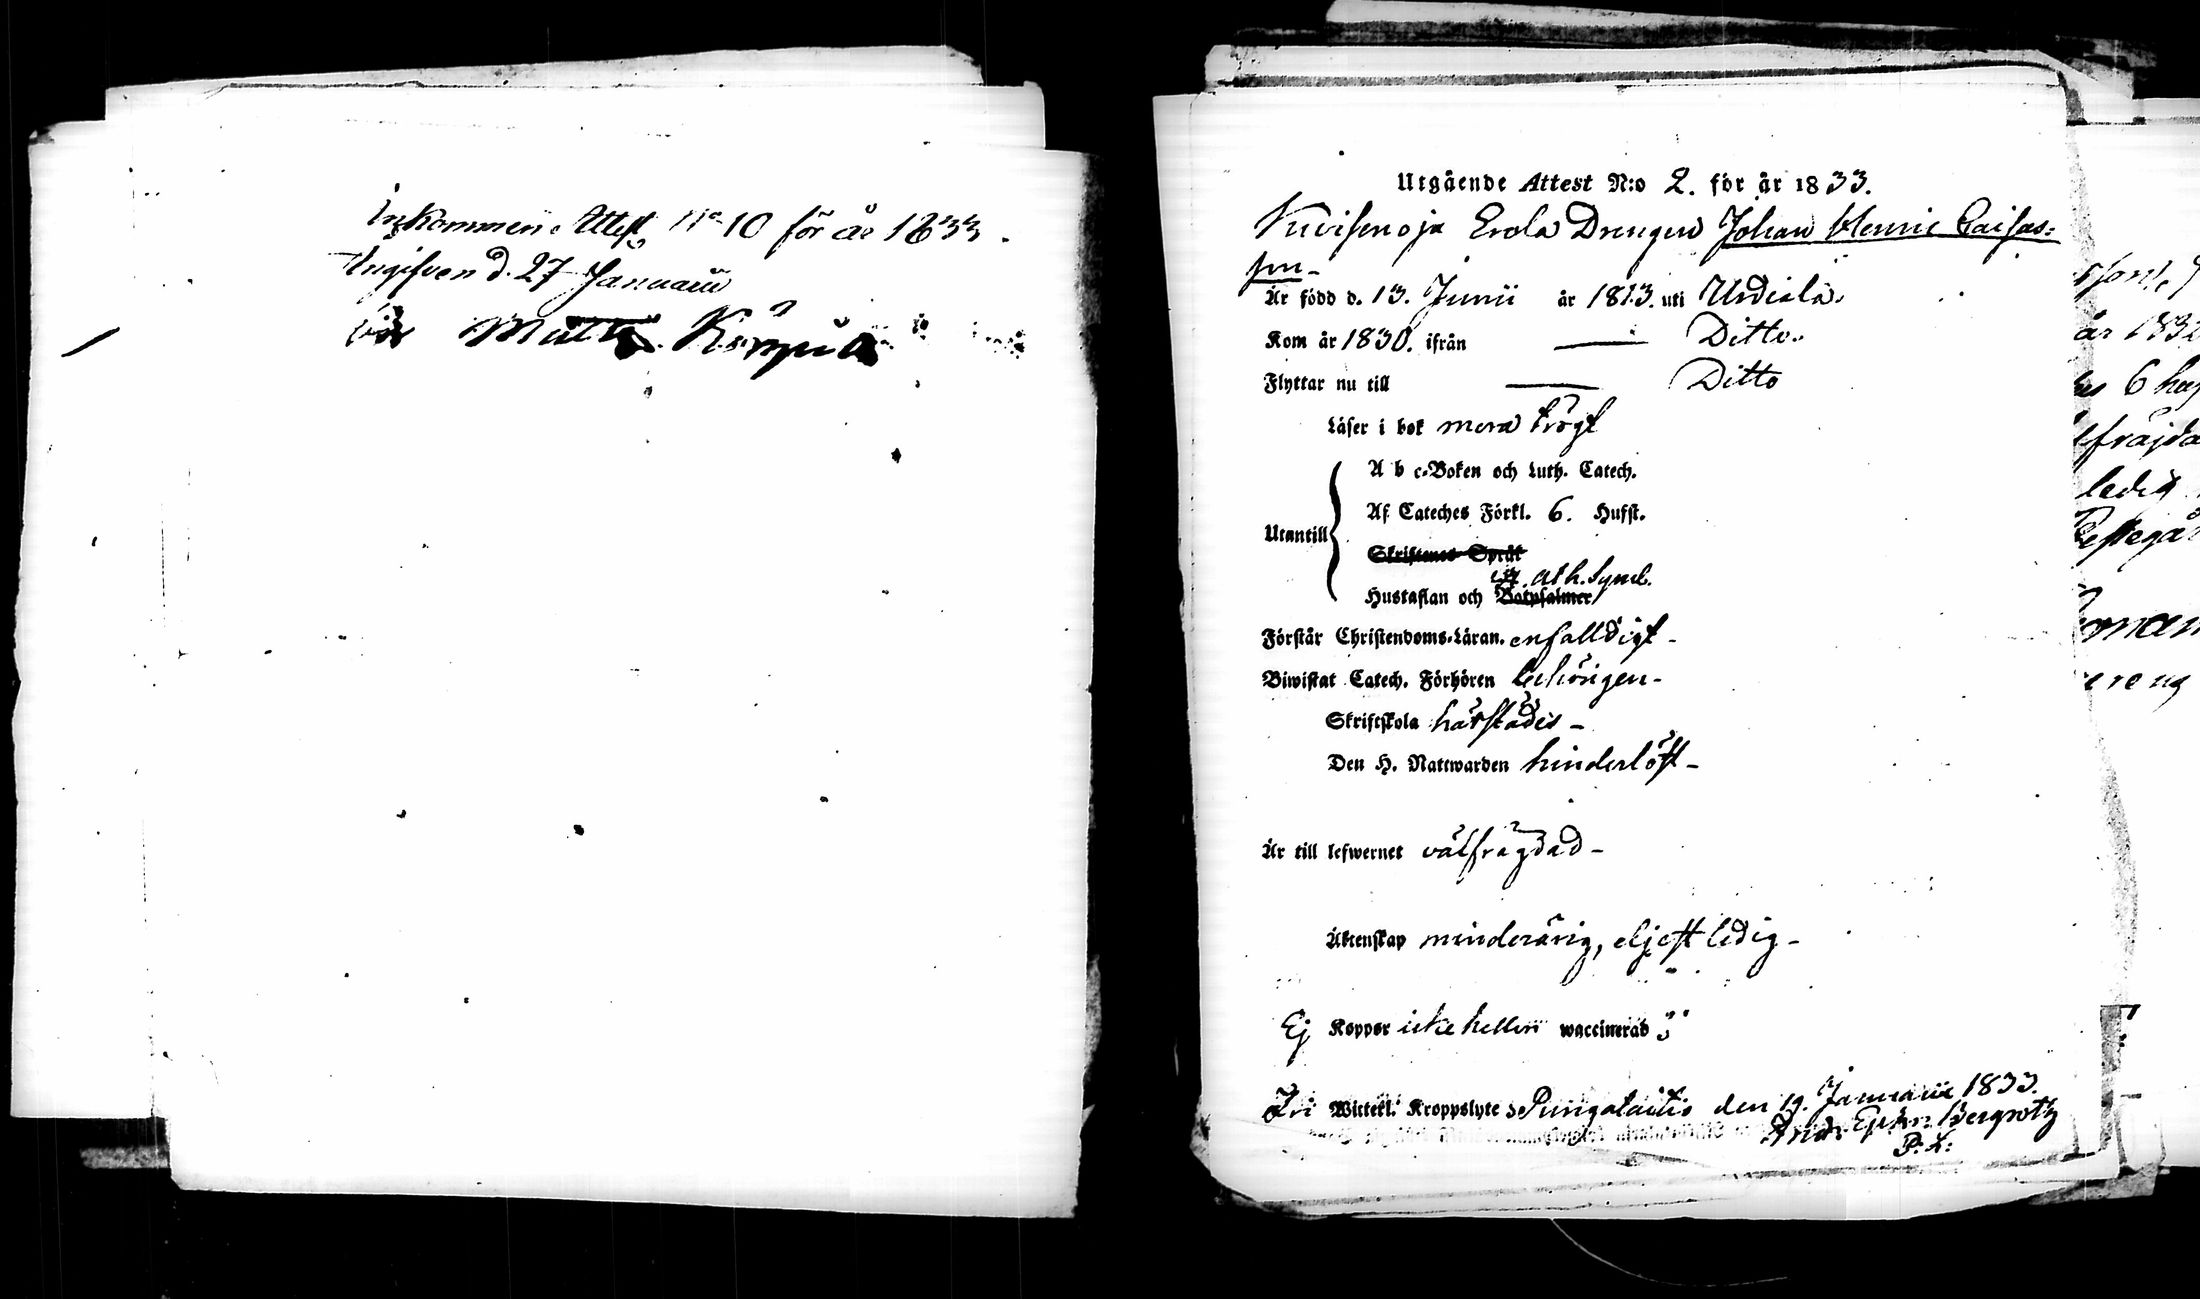 Inkommen Attest No 10 för år 1833.
Ingifven d. 27 Januarii
Matts
Utgående Attest N:o 2. för år 1833.
Erola Drengen Johan Henric Caisas=
son-
Är född d. 13. Junii år 1813. uti Urdiala.
Kom år 1830. ifrån — Ditto.
Flyttar nu till — Ditto
Läser i bok mera trögt
A b c-Boken och Luth. Catech.
Af Cateches Förkl. 6. Hufst.
Utantill
Skriftenes Språk
Ath. Symb.
Hustaflan och Botpsalmer
Förstår Christendoms-Läran. enfalldigt-
Biwistat Catech. Förhören behörigen-
Skriftskola härstädes-
Den H. Nattwarden hinderlöst-
Är till lefwernet välfrägdad-
Äktenskap minderårig, eljest ledig-
Ej Koppor icke hellers waccinerad
Fri Wittekl. Kroppslyte den 19. Januarii 1833.
Bergroth
P. L.
år 1832
6
ledig